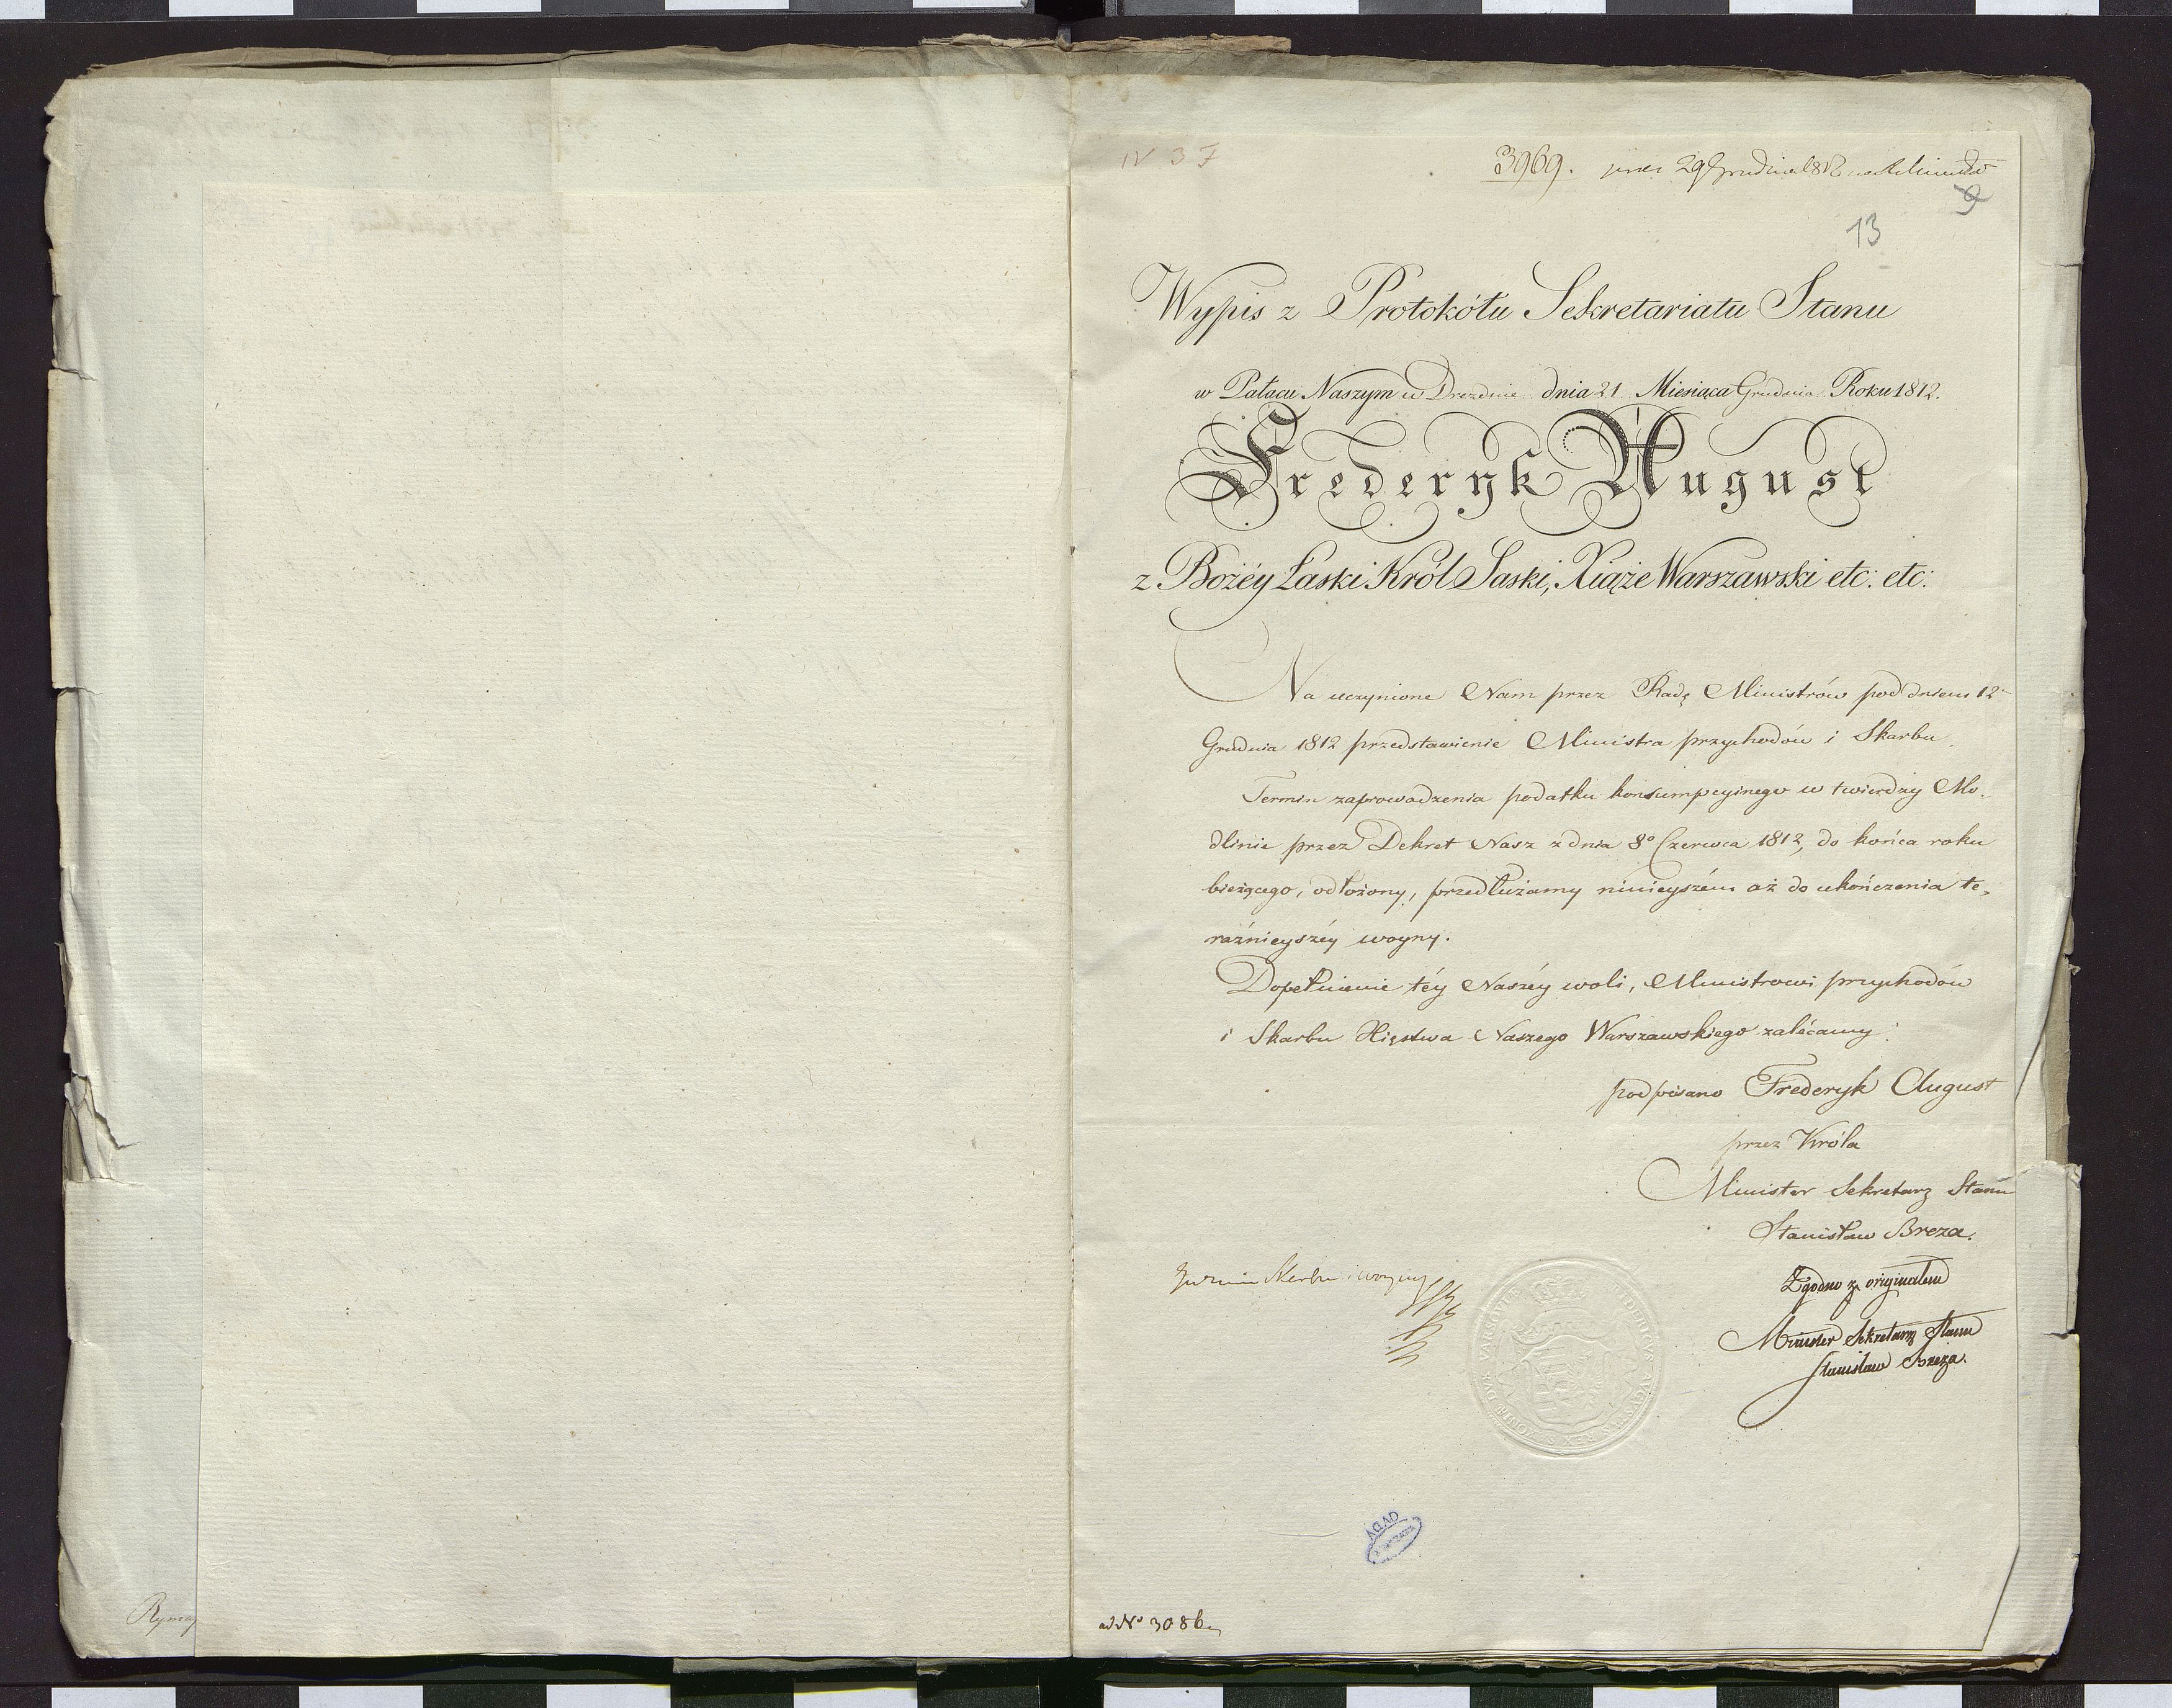 IV 37
3969. 29 Grudnia 1812
9
13
Wypis z Protokółu Sekretariatu Stanu
w Pałacu Naszym w Dreznie dnia 21 Miesiąca Grudnia Roku 1812.
Frederyk August
z Bożéy Łaski Król Saski, Xiąże Warszawski etc: etc:
Na uczynione Nam przez Radę Ministrów pod dniem 12
Grudnia 1812 przedstawienie Ministra przychodów i Skarbu
Termin zaprowadzenia podatku konsumpcyinego w twierdzy Mo-
dlinie przez Dekret Nasz z dnia 8º Czerwca 1812, do końca roku
bieżącego, odłożony, przedłużamy ninieyszém aż do ukończenia te-
raźnieyszéy woyny.
Dopełnienie téy Naszéy woli, Ministrowi przychodów
i Skarbu Xięstwa Naszego Warszawskiego zalécamy.
podpisano Frederyk August
przez Króla
Minister Sekretarz Stanu
Stanisław Breza.
Zgodno z originałem
Minister Sekretarz Stanu
Stanisław Breza.
Skarbu i woyny
AGAD
ad Nº 3086